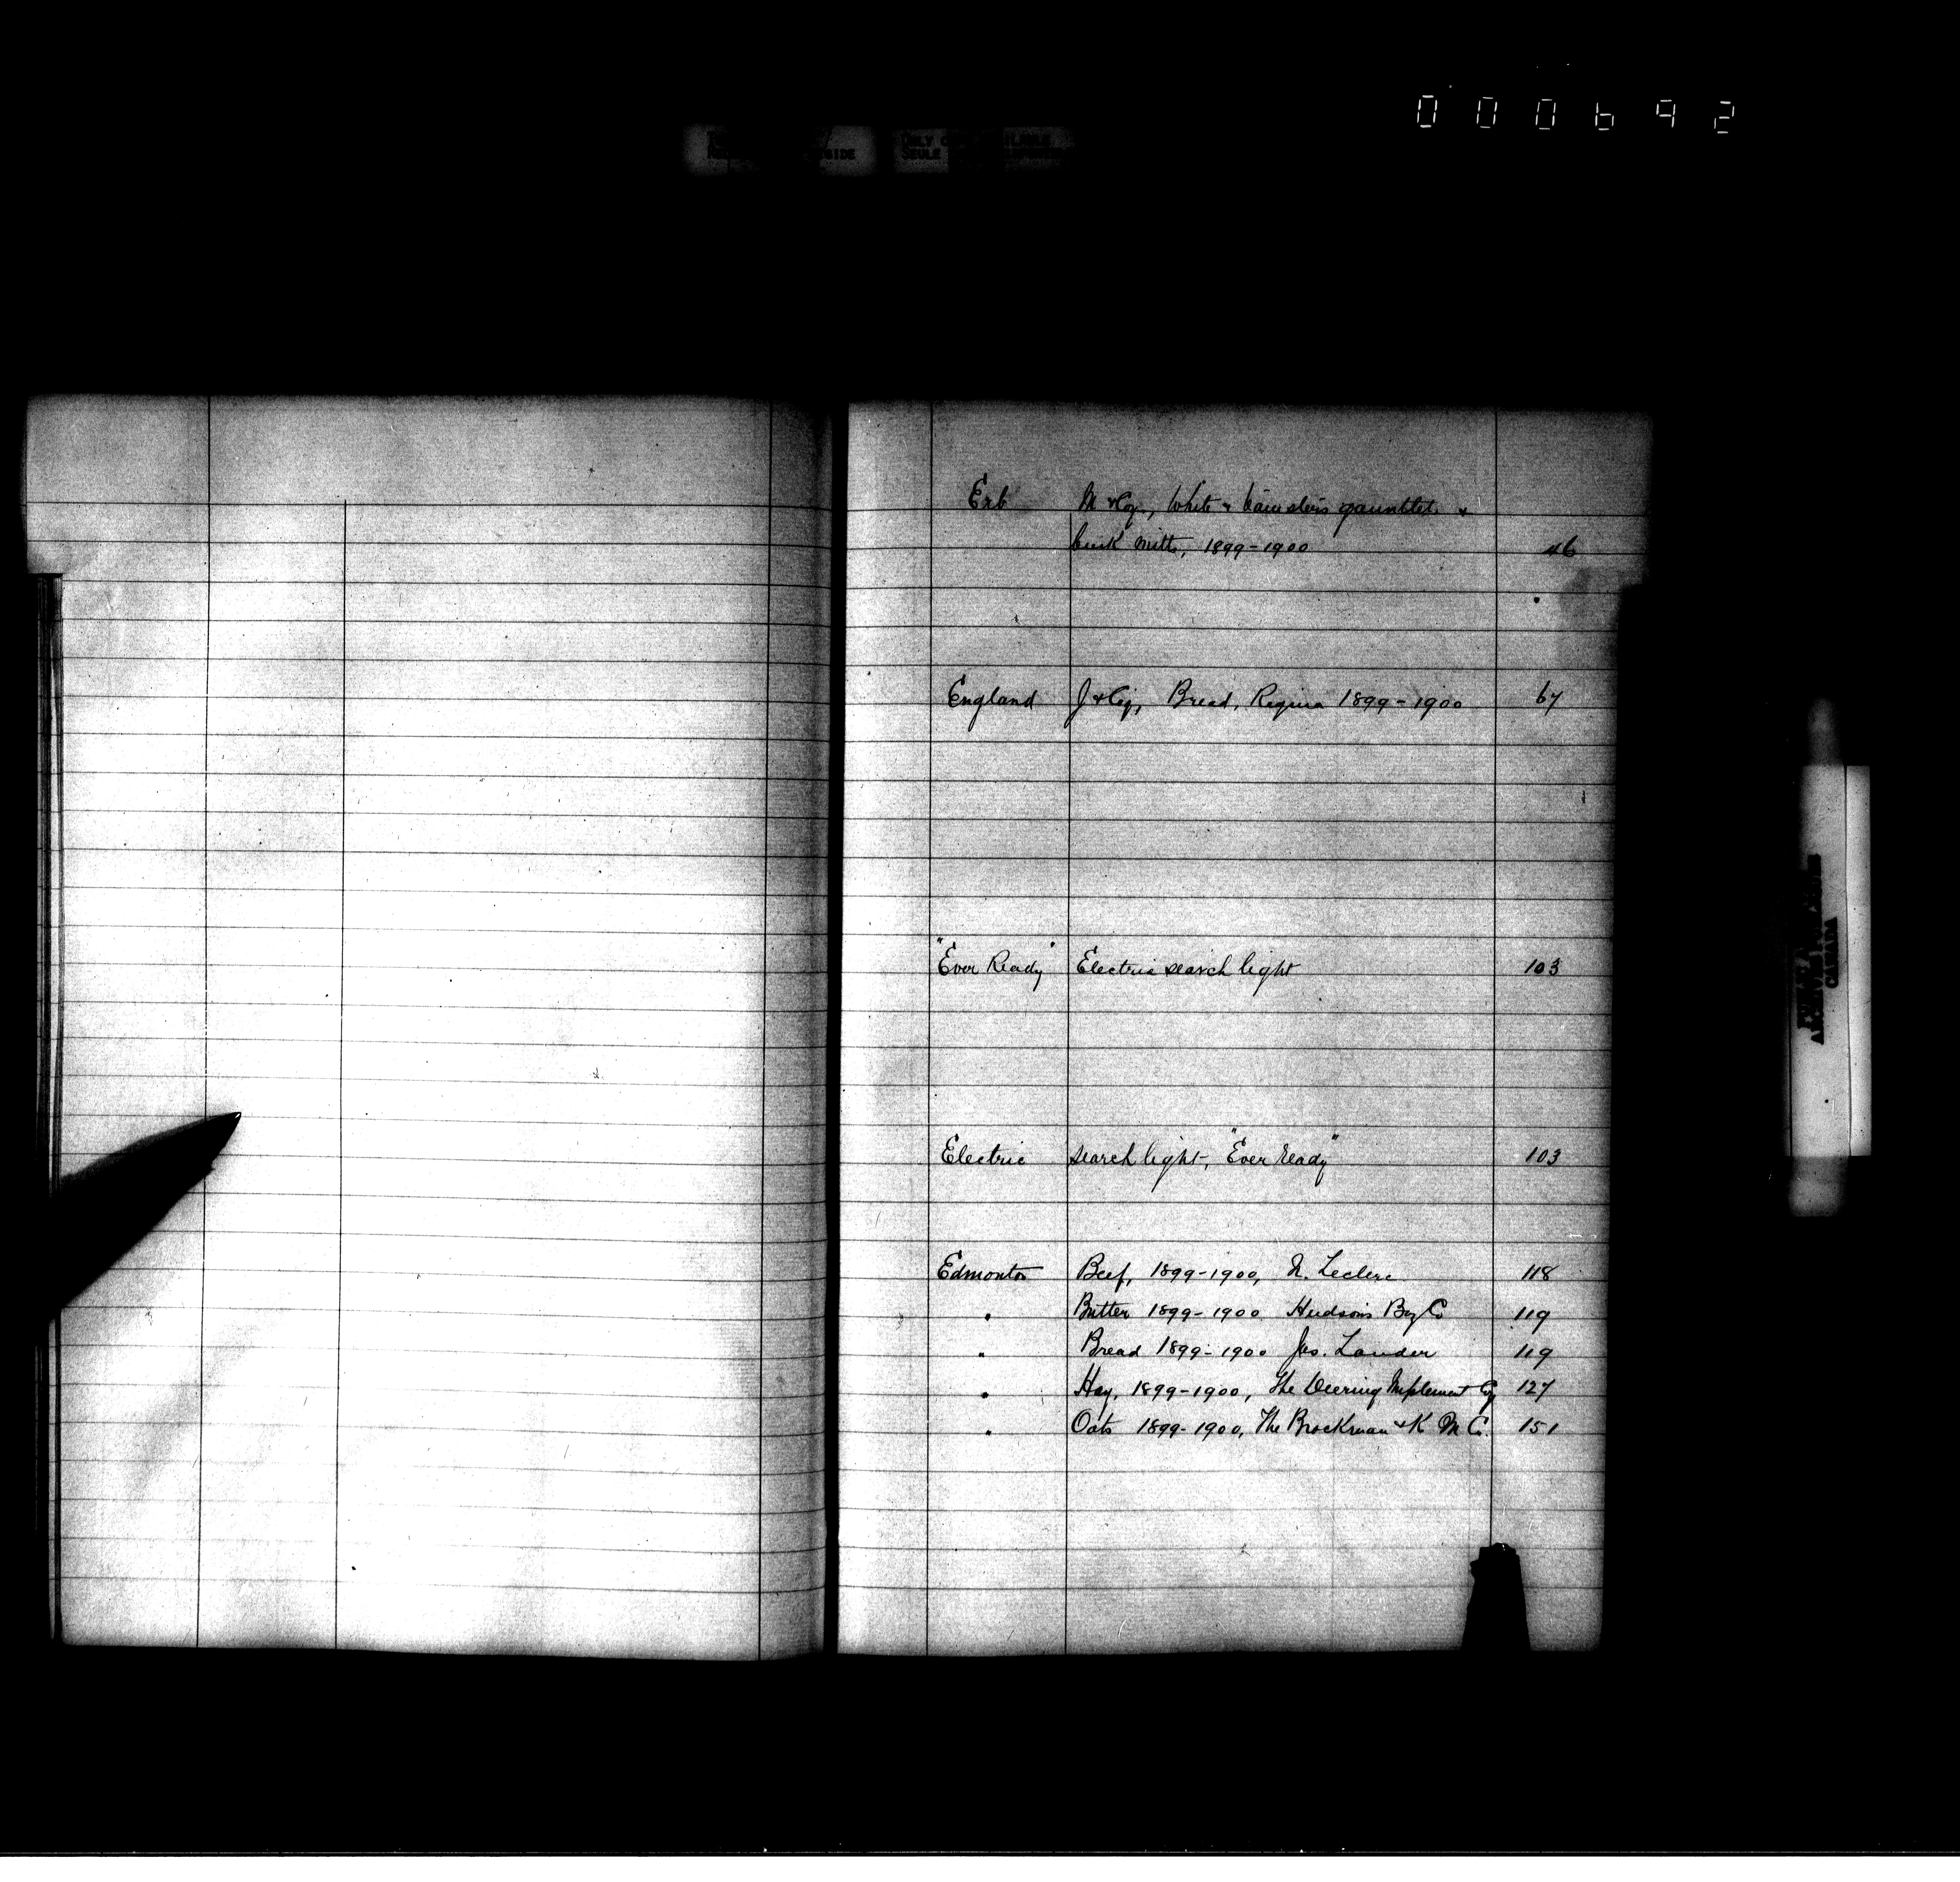 000692
ONLY
SEULE
Erb M & Coy., White & gauntlet &
buck mitts, 1899-1900 46
England J & Coy, Bread, Regina 1899-1900 67
"Ever Ready" Electric search light 103
Electric search light, "Ever ready" 103
Edmonton Beef, 1899-1900, N. Leclerc 118
" Butter 1899-1900 Hudson's Bay Co 119
" Bread 1899-1900 Jas. Lauder 119
" Hay, 1899-1900, The Deering Implement Coy 127
" Oats 1899-1900, The Brackman & K M Co. 151
PUBLIC ARCHIVES
CANADA